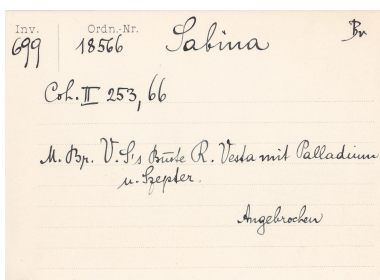 Inv. Ordn.-Nr.
699 18566 Sabina Br
Coh. II 253, 66
M. Br. V. S's Büste R. Vesta mit Palladium
u. Szepter.
Angebrochen